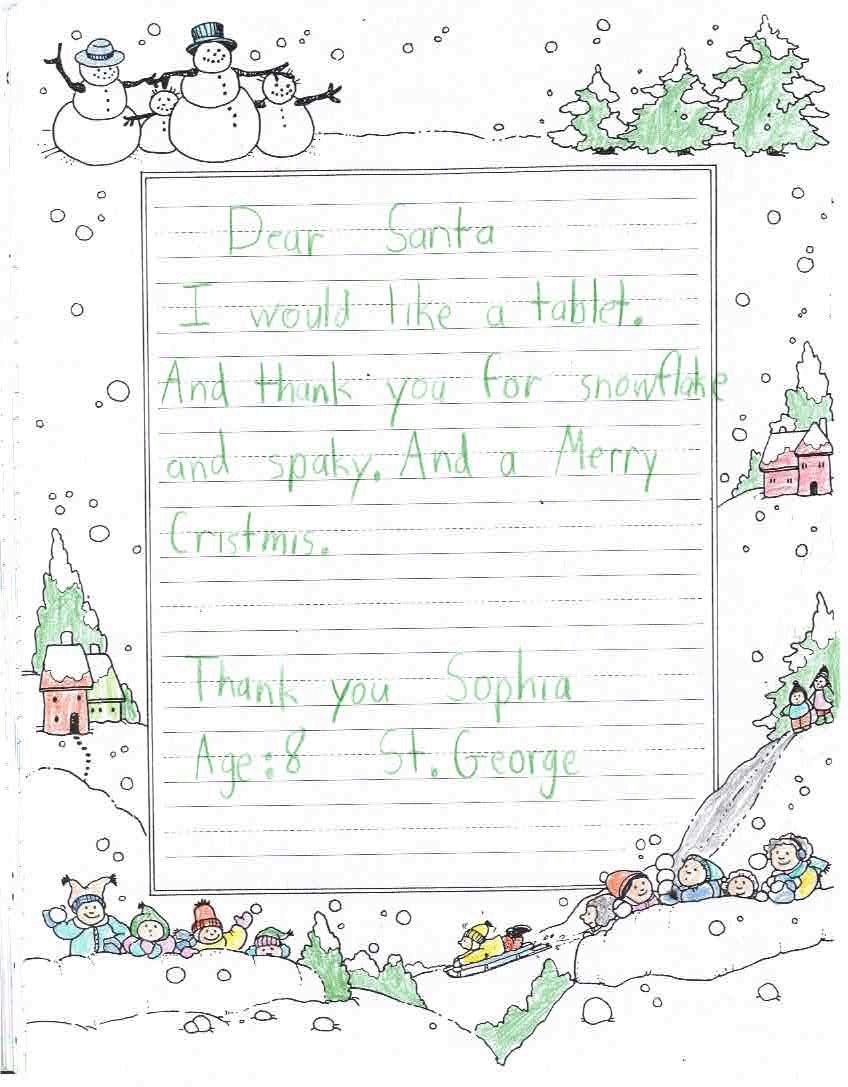 Dear Santa
I would like a tablet.
And thank you for snowflake
and spaky. And a Merry
Cristmis.
Thank you Sophia
Age: 8 St. George